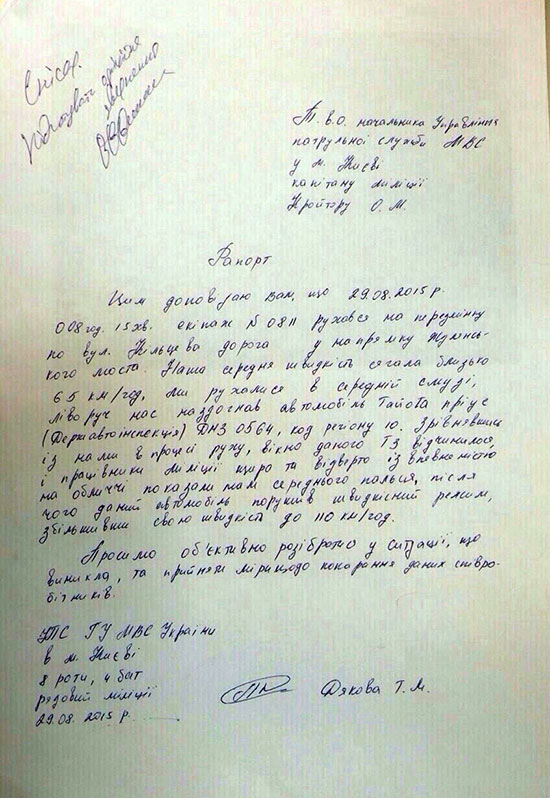 Т.в.о. начальника Управління
патрульної служби МВС
у м. Києві
капітану міліції
Кройтэру О.М.
Рапорт
Цим доповідаю Вам, що 29.08.2015 р.
о 08 год. 15 хв. екіпаж №0811 рухався на передмінку
по вул. Кільцева дорога у напрямку Жулянсь-
кого моста. Наша середня швидкість сягала близько
65 км/год, ми рухалися в середній смузі,
ліворуч нас наздогнав автомобіль Тайота пріус
(Державтоінспекція) ДНЗ 0564, код регіону 10. Зрівнявшись
із нами в процесі руху, вікно даного ТЗ відчинилося,
і працівники міліції щиро та відверто із впевненістю
на обличчі показали нам середнього пальця, після
чого даний автомобіль порушив швидкісний режим,
збільшивши свою швидкість до 110 км/год.
Просимо об'єктивно розібратись у ситуації, що
виникла, та прийняти міри щодо покарання даних співро-
бітників.
УПС ГУ МВС України
в м. Києві
8 роти, 4 бат
рядовий міліції
29.08.2015 р.
Дякова Т.М.